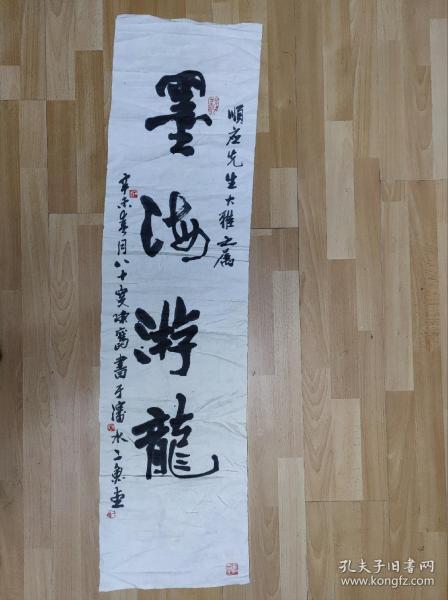 順应先生大雅之属
墨海游龍
辛未春月八十叟冰窩書于濤水之奧
孔夫子旧书网
www.kongfz.com